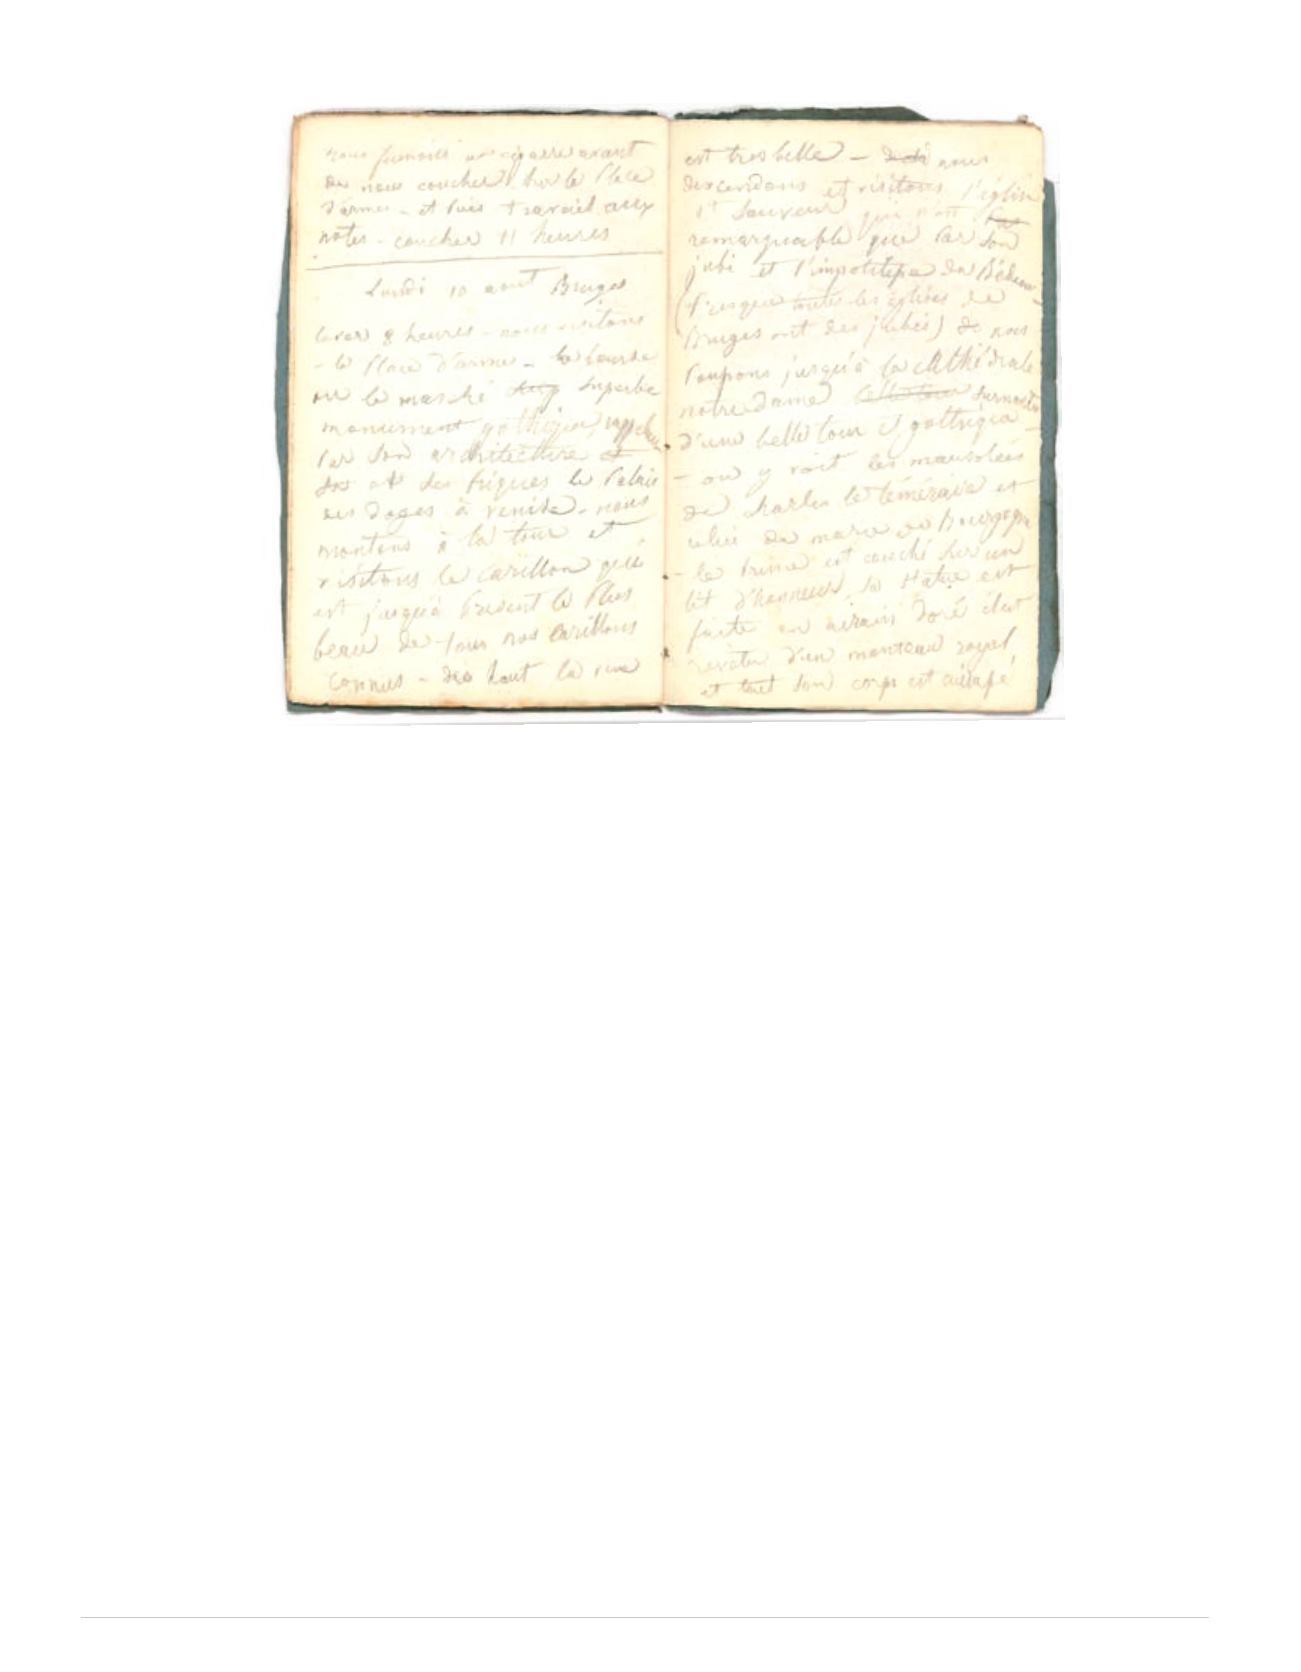 nous fumons un cigarre avant
de nous coucher sur la Place
d'armes - et puis travail aux
notes - coucher 11 heures
Lundi 10 aout Bruges
lever 8 heures - nous visitons
- la Place d'armes - la
ou le marché superbe
monument gothique,
Par son architecture et
et ses le Palais
des Doges à venise - nous
montons à la tour et
visitons le carillon qui
est jusqu'à Présent le Plus
beau de tous nos carillons
connus - de haut la vue
est tres belle - de là nous
descendons et visitons l'église
St Sauveur qui n'est
remarquable que Par son
jubé et
(Presque toutes les églises de
Bruges ont des jubés) de nous
Poupons jusqu'à la cathédrale
notre dame celle tour surmontée
d'une belle tour gothique
- on y voit les mausolées
de charles le téméraire et
celui de marie de Bourgogne
- le Prince est couché sur un
lit d'honneur, sa statue est
faite en airain doré il est
revetu d'un manteau royal,
et tout son corps est